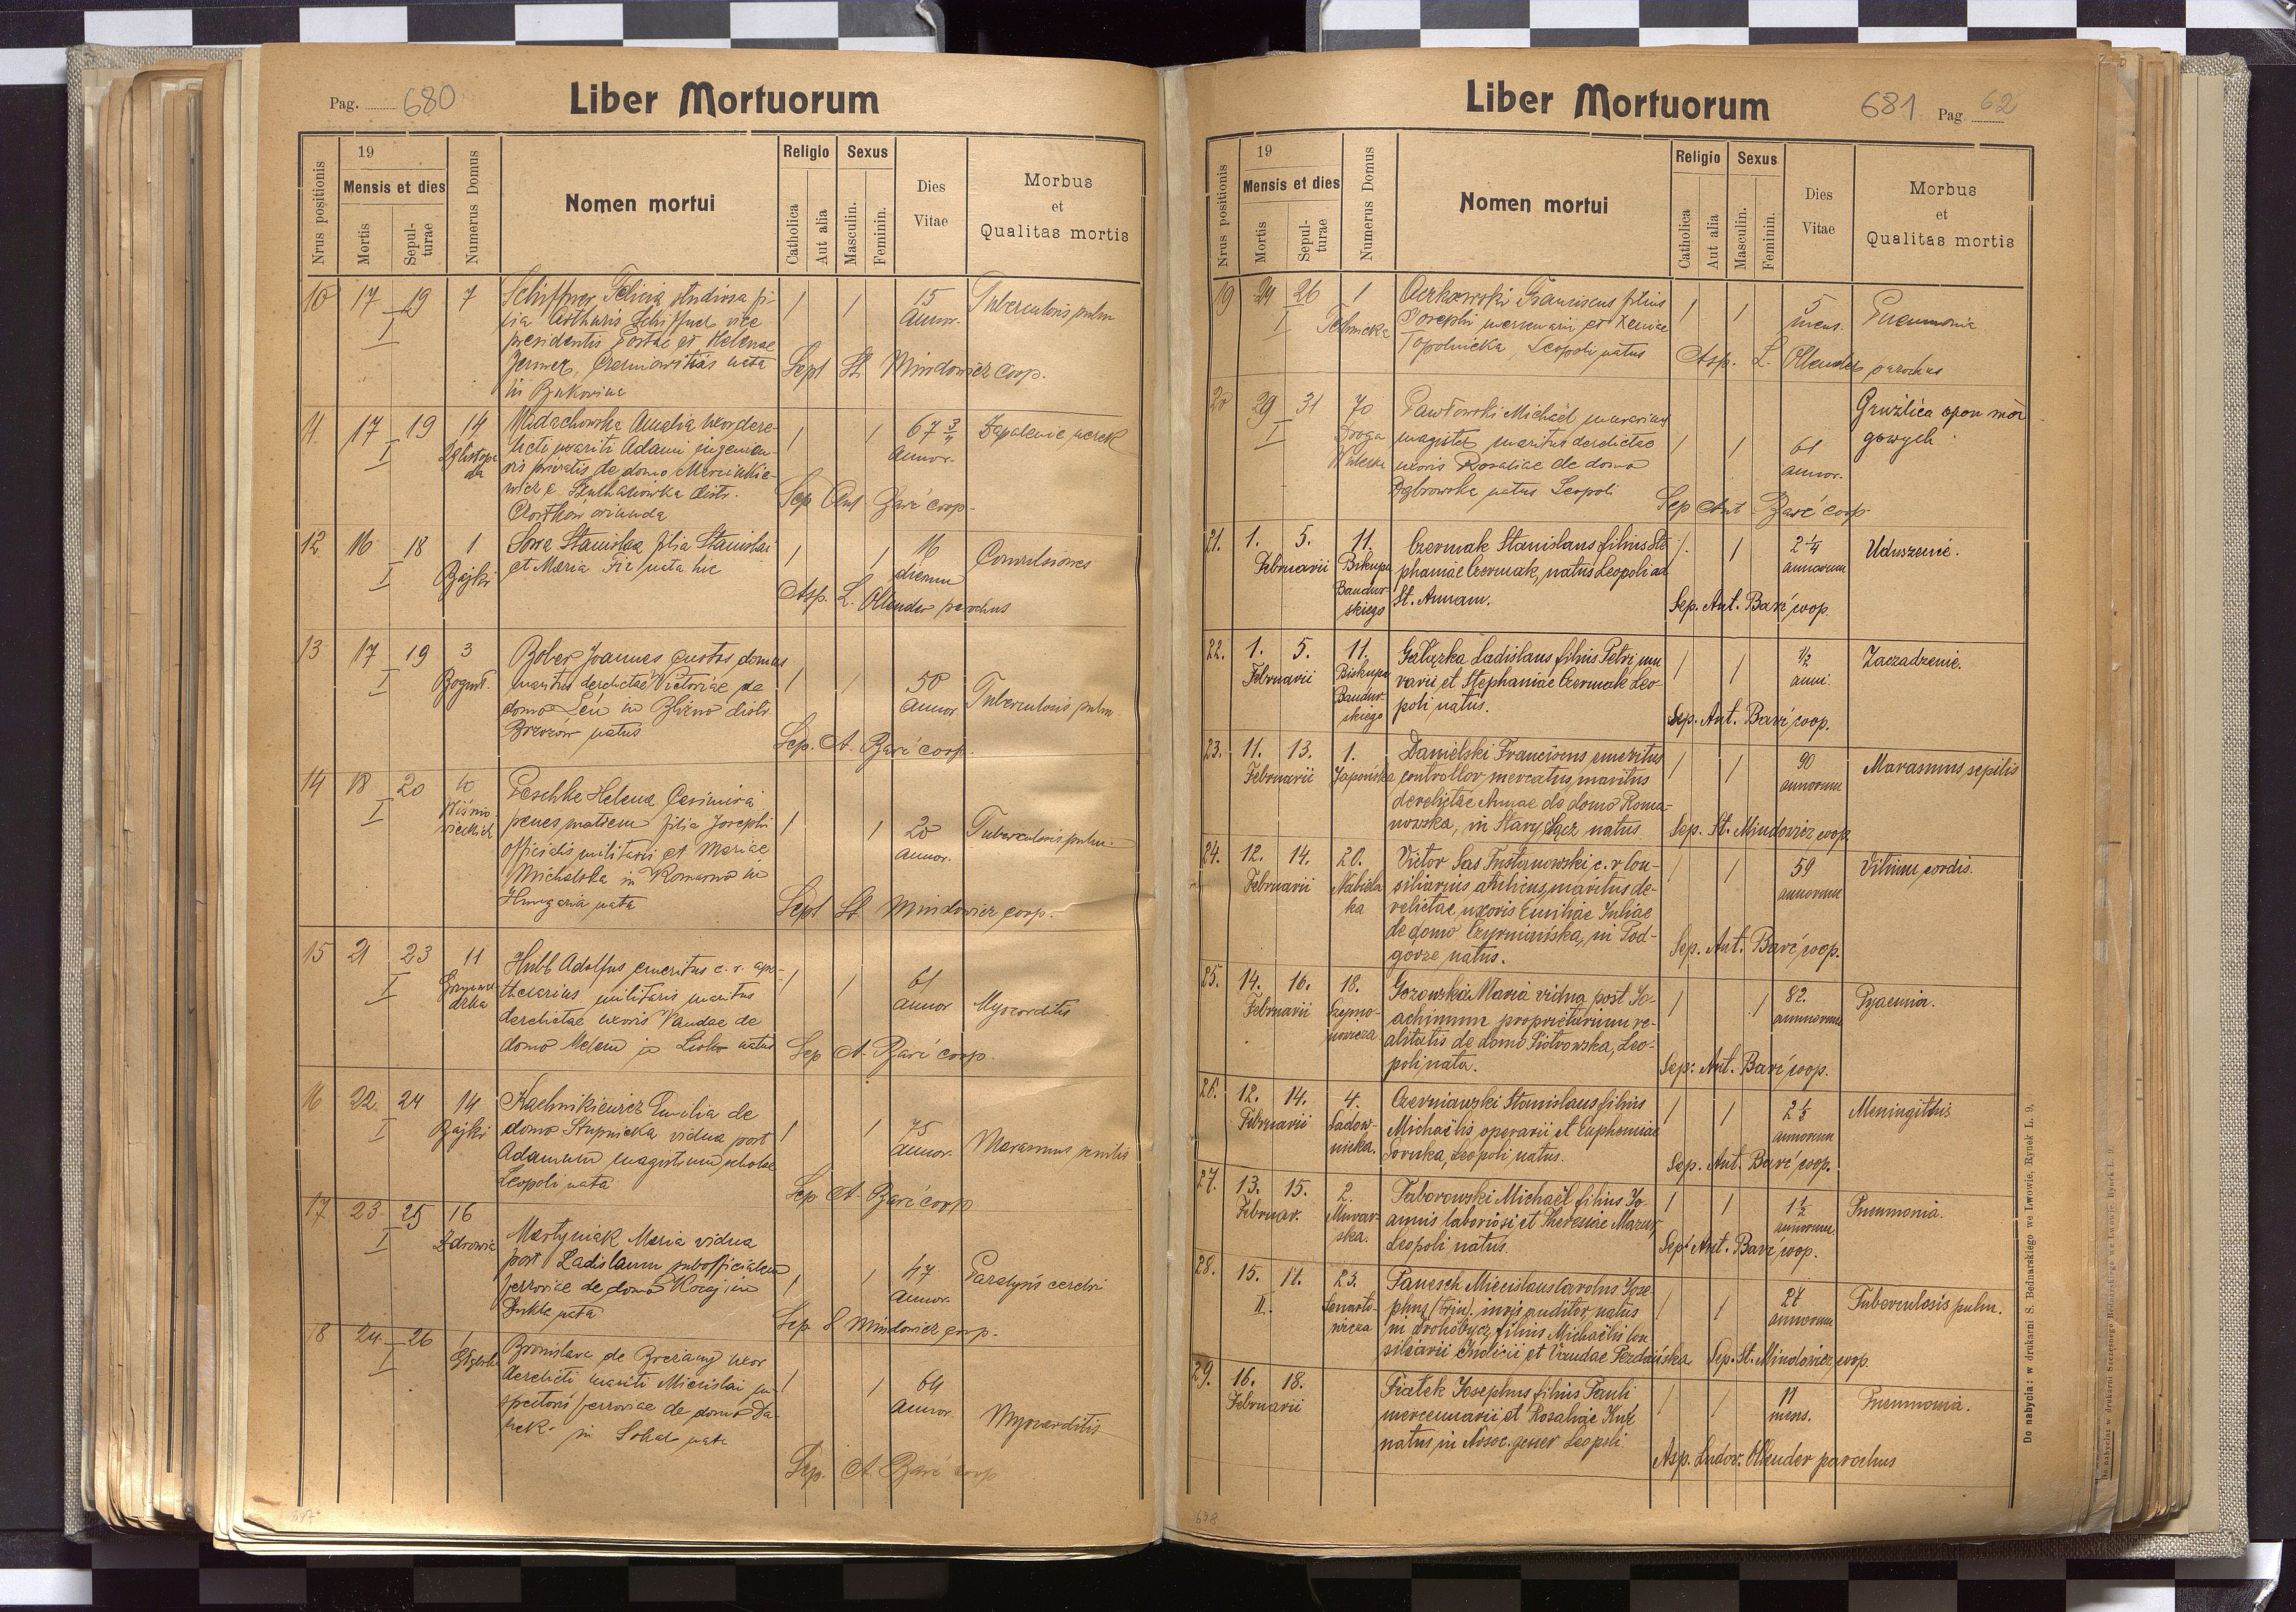 Pag. 680
Liber Mortuorum
Nrus positionis
19
Mensis et dies
Mortis
Sepulturae
Numerus Domus
Nomen mortui
Religio
Catholica
Aut alia
Sexus
Masculin.
Feminin.
Dies
Vitae
Morbus
et
Qualitas mortis
10 17 19 7 Schiffner Felicia studiosa fi- 1 1 15 Tuberculosis pulm
I lia Arthuris Schiffner vice annor.
presidentis Postae et Helenae
Czerniowitiis nata Sept St. Mindowicz coop.
in Bukovina
11 17 19 14 Amalia uxor dere- 1 1 67 3/4 Zapalenie nerek
I Listopa licti mariti Adami annor.
da privatis de domo
distr. Sep Ant. Barć coop.
oriunda
12 16 18 1 Sowa Stanislaa filia Stanislai 1 1 16 Convulsiones
I Bajki et Maria nata hic dierum
Asp. L. Ollender parochus
13 17 19 3 Bober Joannes custos domus 1 1 50 Tuberculosis pulm.
I maritus derelictae Victoriae de annor
domo Leń in distr.
natus Sep. A. Barć coop.
14 18 20 10 Peschke Helena Casimira 1 1 20 Tuberculosis pulm.
I Wiśnio penes matrem filia Josephi annor.
wieckich officialis militaris et Mariae
Michalska in Komarno in
Hungaria nata Sept St. Mindowicz coop.
15 21 23 11 Hubl Adolfus emeritus c. r. apo- 1 1 61 Myocarditis
I thecarius militaris maritus annor
derelictae uxoris Vandae de
domo natus Sep A. Barć coop.
16 22 24 14 Kachnikiewicz Emilia de 1 1 75 Marasmus senilis
I Bajki domo Stupnicka vidua post annor.
Adamum magistrum scholae
Leopoli nata Sep A. Barć coop
17 23 25 16 Martyniak Maria vidua 1 1 47 Paralysis cerebri
I Zdrowia post Ladislaum subofficialem annor.
ferroviae de domo in
Dukla nata Sep S Mindowicz coop.
18 24 26 Bronislava de Brezany uxor 1 1 64 Myocarditis
I derelicti mariti Miecislai in- annor.
spectoris ferroviae de domo
in Sokal nata Sep. A. Barć coop
Liber Mortuorum
681 Pag. 62
Nrus positionis
19
Mensis et dies
Mortis
Sepulturae
Numerus Domus
Nomen mortui
Religio
Catholica
Aut alia
Sexus
Masculin.
Feminin.
Dies
Vitae
Morbus
et
Qualitas mortis
19 24 26 1 Franciscus filius 1 1 5 Pneumonia
I Josephi mercenarii et Xeniae mens.
Topolnicka, Leopoli natus Asp. L. Ollender parochus
20 29 31 70 Pawłowski Michaël murarius 1 1 61 Gruźlica opon móz
I Droga magister maritus derelictae annor. gowych.
uxoris Rosaliae de domo
Dąbrowska natus Leopoli Sep Ant Barć coop.
21. 1. 5. 11. Czermak Stanislaus filius Ste 1. 1 2 1/4 Uduszenie.
Februarii Biskupa phaniae Czermak, natus Leopoli ad annorum
Bandur- St. Annam. Sep. Ant. Barć coop.
skiego
22. 1. 5. 11. Gałązka Ladislaus filius Petri mu 1 1 1/2 Zaczadzenie.
Februarii Biskupa rarii et Stephaniae Czermak Leo- anni.
Bandur- poli natus. Sep. Ant. Barć coop.
skiego
23. 11. 13. 1. Danielski Franciscus emeritus 1 1 90 Marasmus senilis
Februarii Japońska controllor mercatus, maritus annorum
derelictae Annae de domo Roma-
nowska, in Stary Sącz natus Sep. St. Mindowicz coop.
24. 12. 14. 20. Victor Sas Tustanowski c. r. Con- 1 1 59 Vitium cordis.
Februarii Nabiela siliarius aulicus, maritus de- annorum
ka relictae uxoris Emiliae Juliae
de domo in Pod-
gorze natus. Sep. Ant. Barć coop.
25. 14. 16. 18. Maria vidua post Jo- 1 1 82. Pyaemia.
Februarii Szepno- achimum proprietarium re- annorum
alitatis de domo Piotrowska, Leo-
poli nata. Sep. Ant. Barć coop.
26. 12. 14. 4. Czerniawski Stanislaus filius 1 1 2 1/2 Meningitis
Februarii Sadow- Michaëlis operarii et Euphemiae annorum
nicka. Leopoli natus. Sep. Ant. Barć coop.
27. 13. 15. 2. Taborowski Michaël filius Jo- 1 1 1 1/2 Pneumonia.
Februar. Murar- annis laboriosi et Theresiae Mazur, annorum
ska. Leopoli natus. Sep. Ant. Barć coop.
28. 15. 17. 23. Miecislaus Carolus Jose- 1 1 27 Tuberculosis pulm.
II. phus (trin). iuris auditor, natus annorum
in Drohobycz, filius Michaëlis Con
siliarii et Vandae Sep. St. Mindowicz coop.
29. 16. 18. Fiałek Josephus filius Pauli 1 1 11 Pneumonia.
Februarii mercenarii et Rosaliae Kuk mens.
natus in Nosoc. gener Leopoli. Asp. Ludov. Ollender parochus
Do nabycia: w drukarni S. Bednarskiego we Lwowie, Rynek L. 9.
Do nabycia: w drukarni Szczęsnego Bednarskiego we Lwowie Rynek L. 9.
698